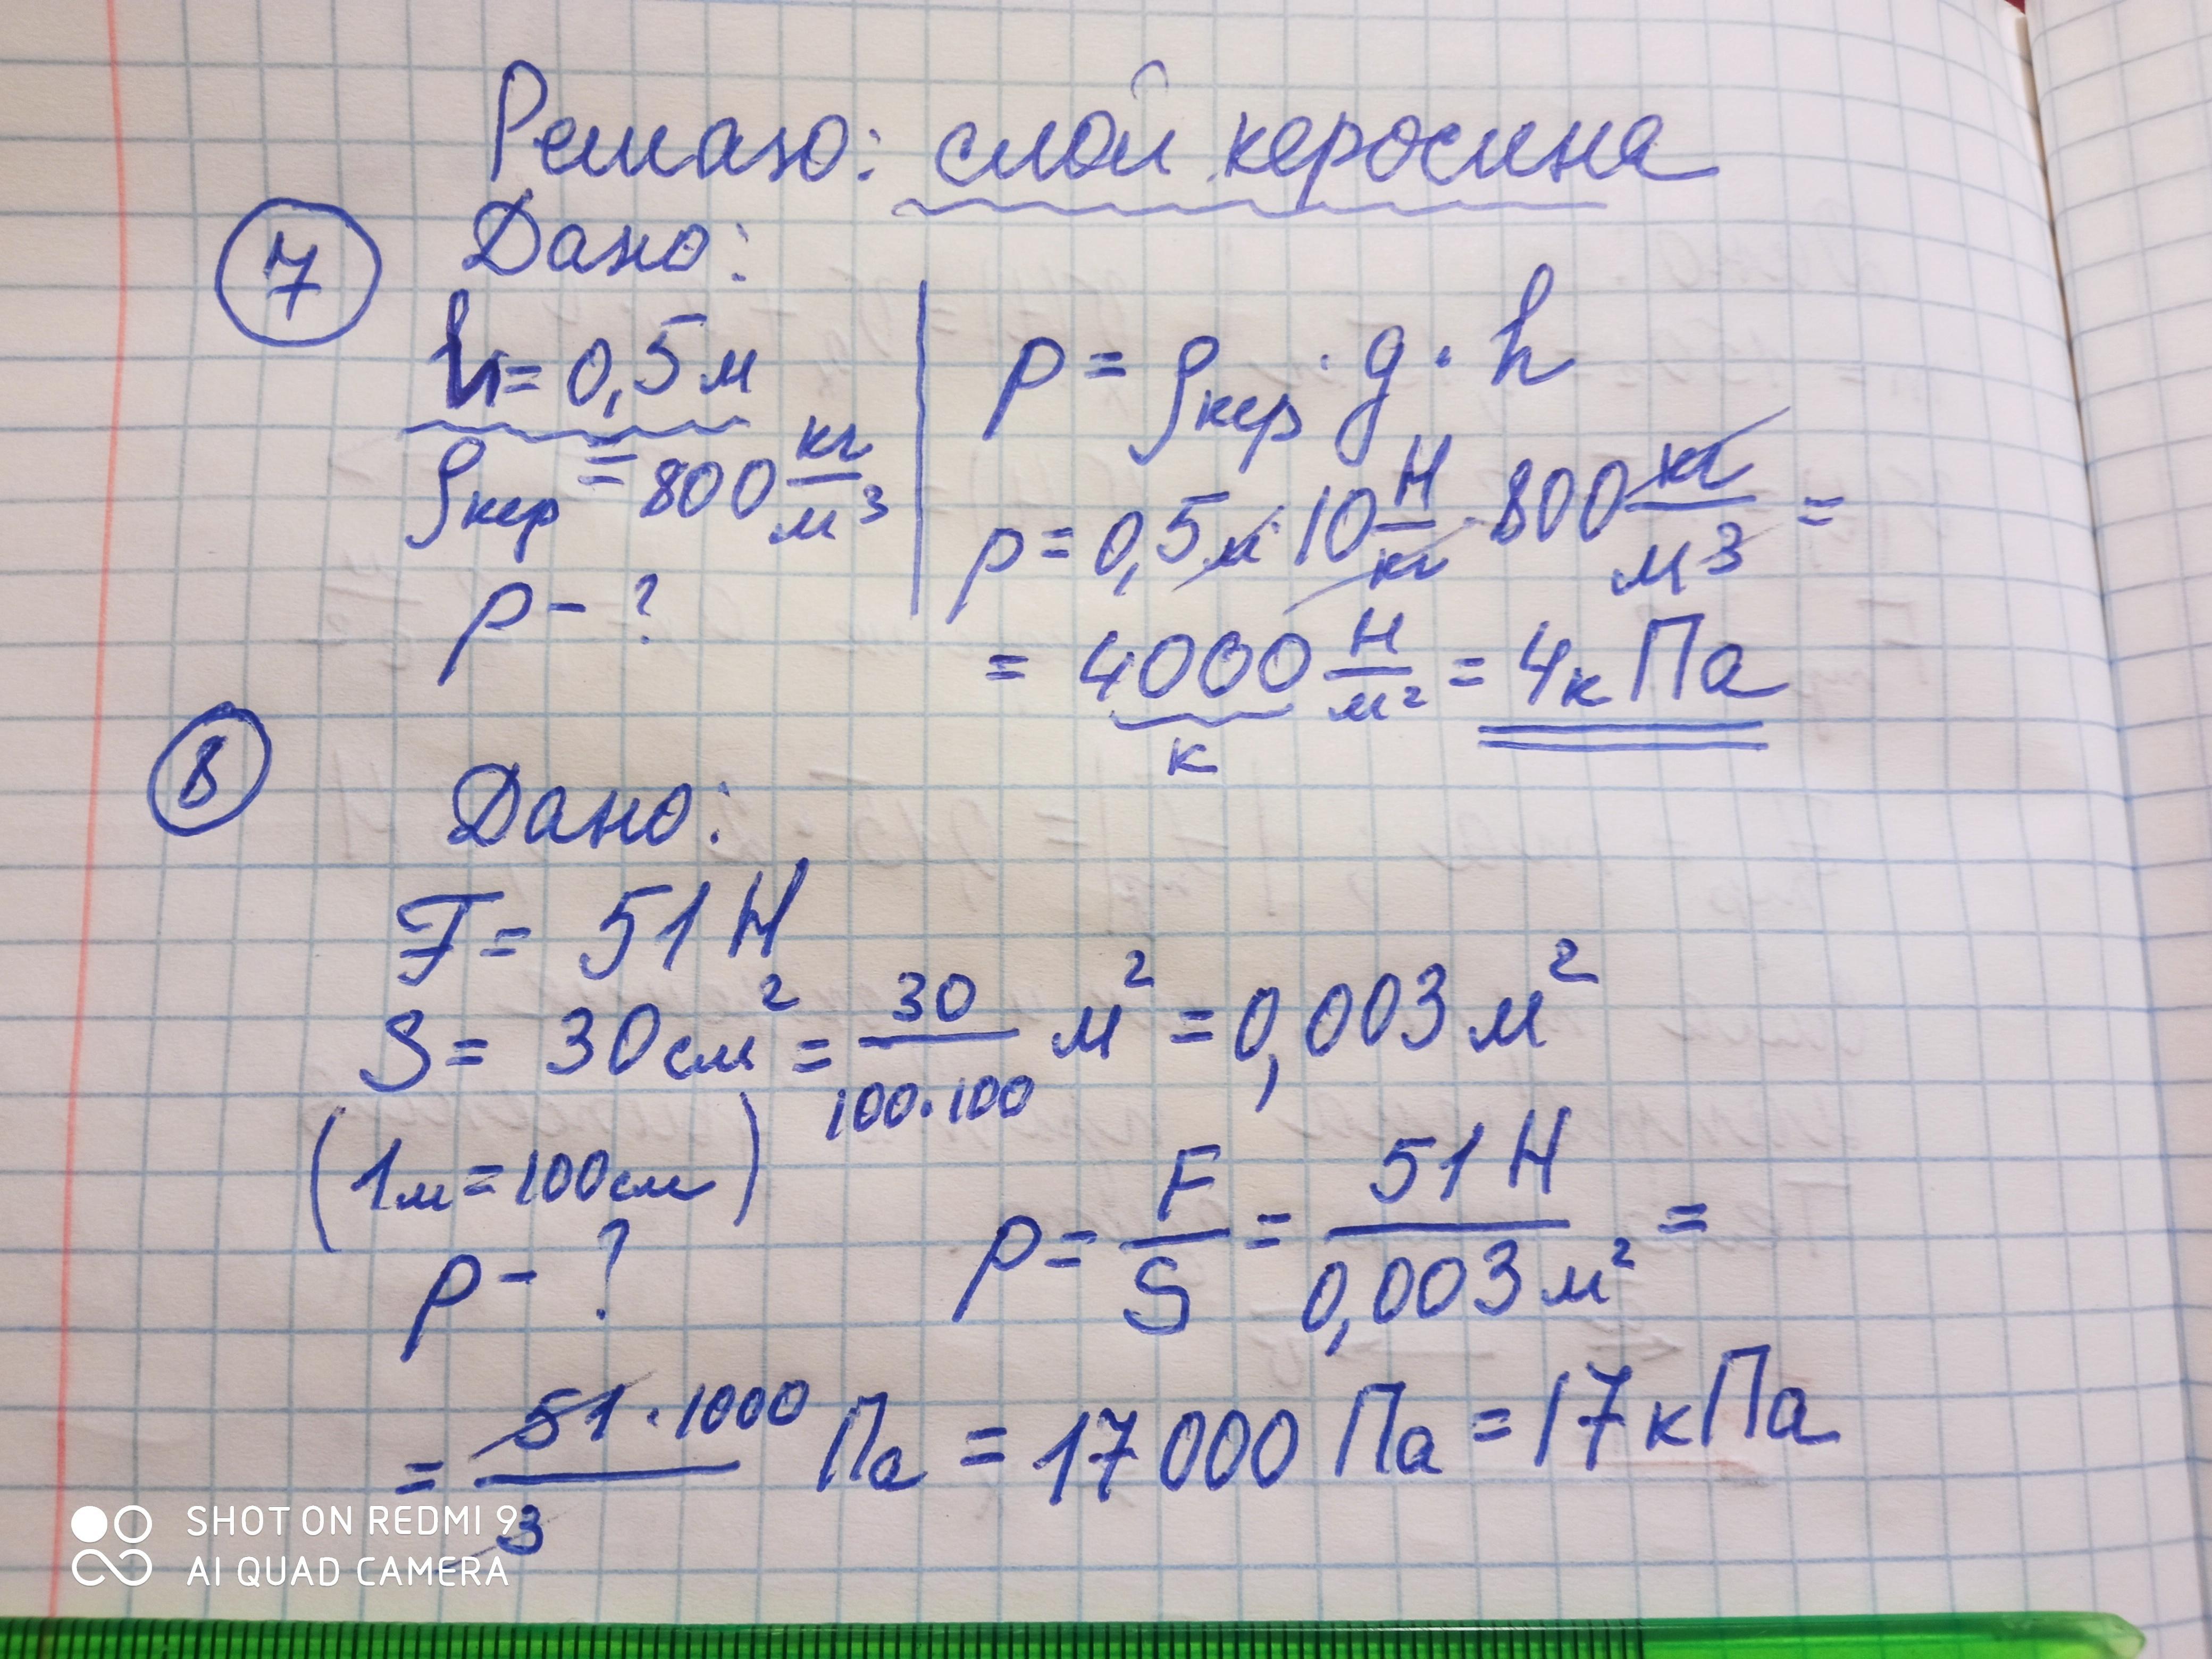 Решаю: слой керосина
7 Дано:
h = 0,5 м
ρкер = 800 кг/м³
p - ?
p = ρкер · g · h
p = 0,5 м · 10 Н/кг · 800 кг/м³ =
= 4000 Н/м² = 4 кПа
к
8 Дано:
F = 51 Н
S = 30 см² = 30/(100·100) м² = 0,003 м²
(1 м = 100 см)
p - ?
p = F/S = 51 Н/0,003 м² =
= 51·1000/3 Па = 17 000 Па = 17 кПа
SHOT ON REDMI 9
AI QUAD CAMERA